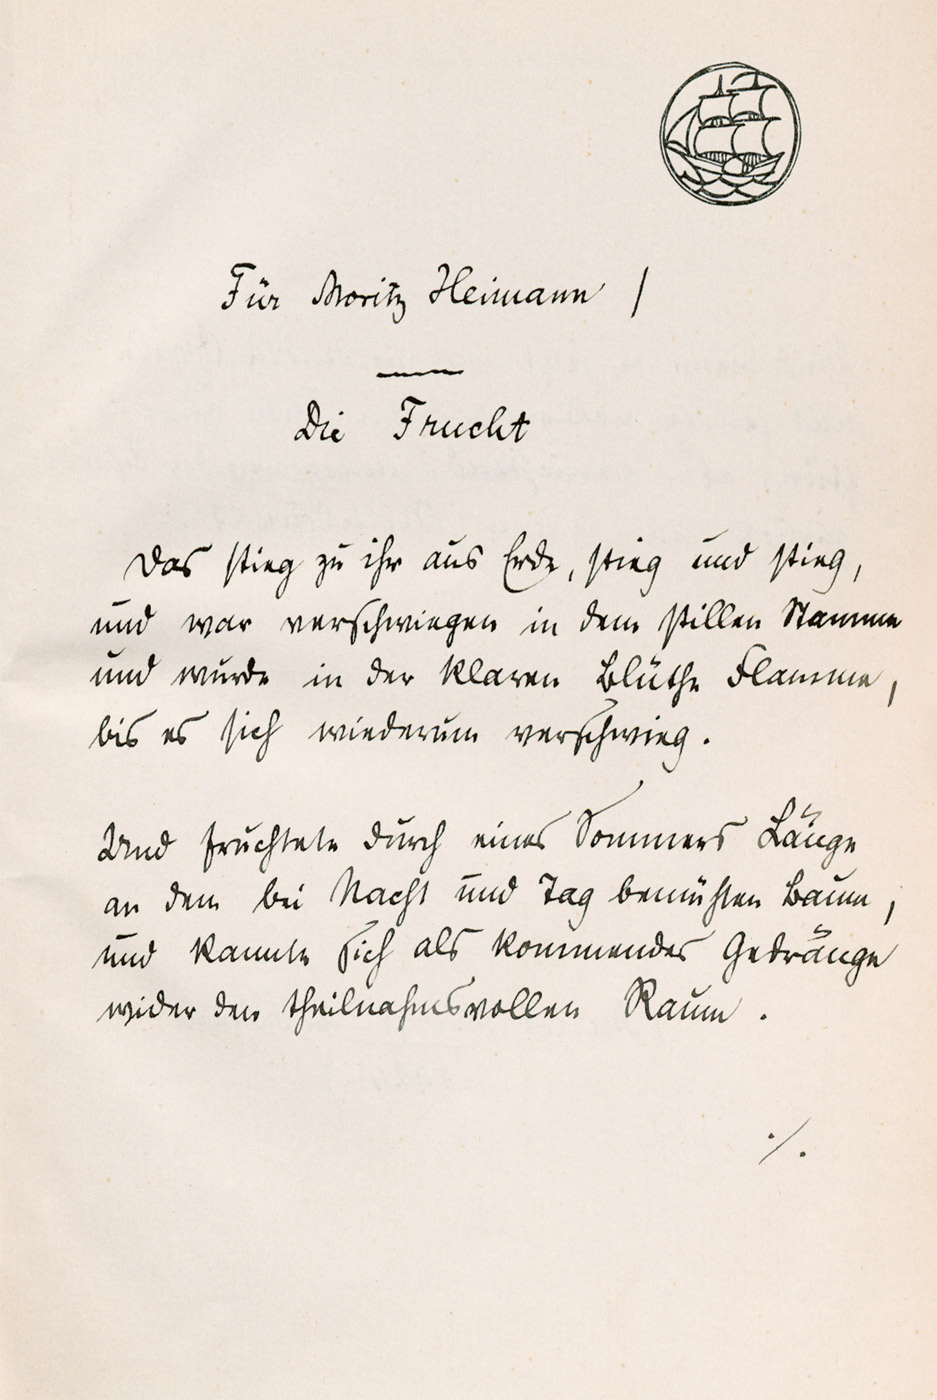 Für Moritz Heimann /
Die Frucht
Das stieg zu ihr aus Erde, stieg und stieg,
und war verschwiegen in dem stillen Stamme
und wurde in der klaren Blüthe Flamme,
bis es sich wiederum verschwieg.
Und fruchtete durch eines Sommers Länge
an dem bei Nacht und Tag bemühten Baum,
und kannte sich als kommendes Gedränge
wider den theilnahmsvollen Raum.
./.